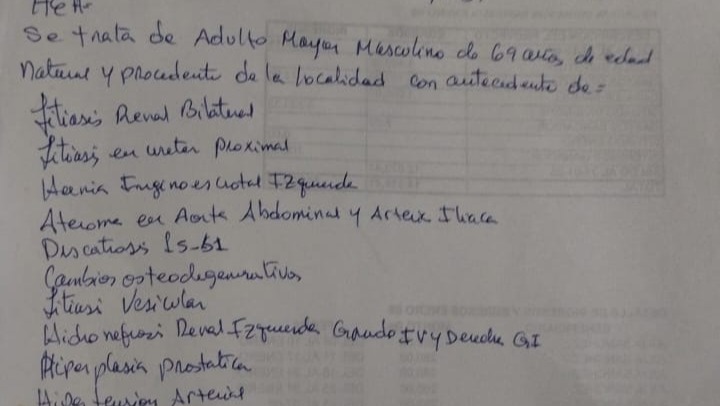 HEA=
Se trata de Adulto Mayor Masculino de 69 años de edad
Natural y procedente de la localidad con antecedente de=
Litiasis Renal Bilateral
Litiasis en ureter proximal
Hernia Inguinoescrotal Izquierda
Ateroma en Aorta Abdominal y Arteria Iliaca
Discatrosis L5-S1
Cambios osteodegenerativos
Litiasi Vesicular
Hidronefrosi Renal Izquierda Grado IV y Derecha GI
Hiperplasia prostatica
Hipertension Arterial